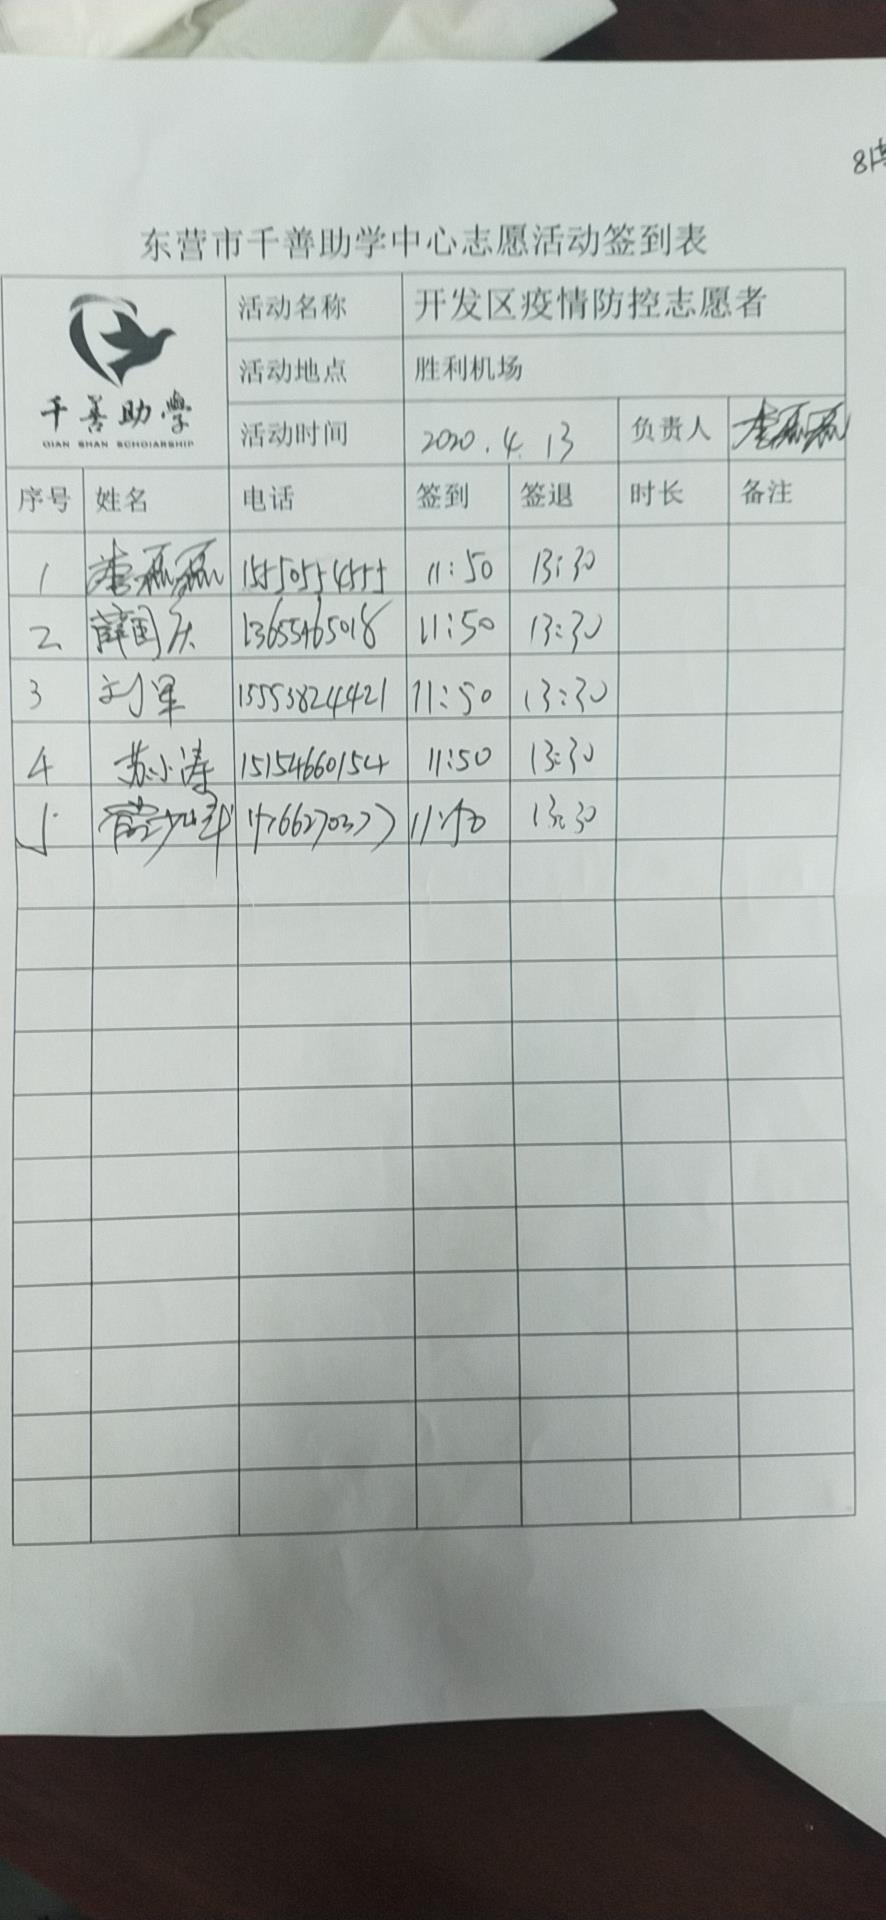 东营市千善助学中心志愿活动签到表
千善助学
QIAN SHAN SCHOLARSHIP
活动名称 开发区疫情防控志愿者
活动地点 胜利机场
活动时间 2020.4.13 负责人 李磊磊
序号 姓名 电话 签到 签退 时长 备注
1 李磊磊 15550554555 11:50 13:30
2 薛国庆 13655465018 11:50 13:30
3 刘军 15553824421 11:50 13:30
4 苏小涛 15154660154 11:50 13:30
5 11:50 13:30